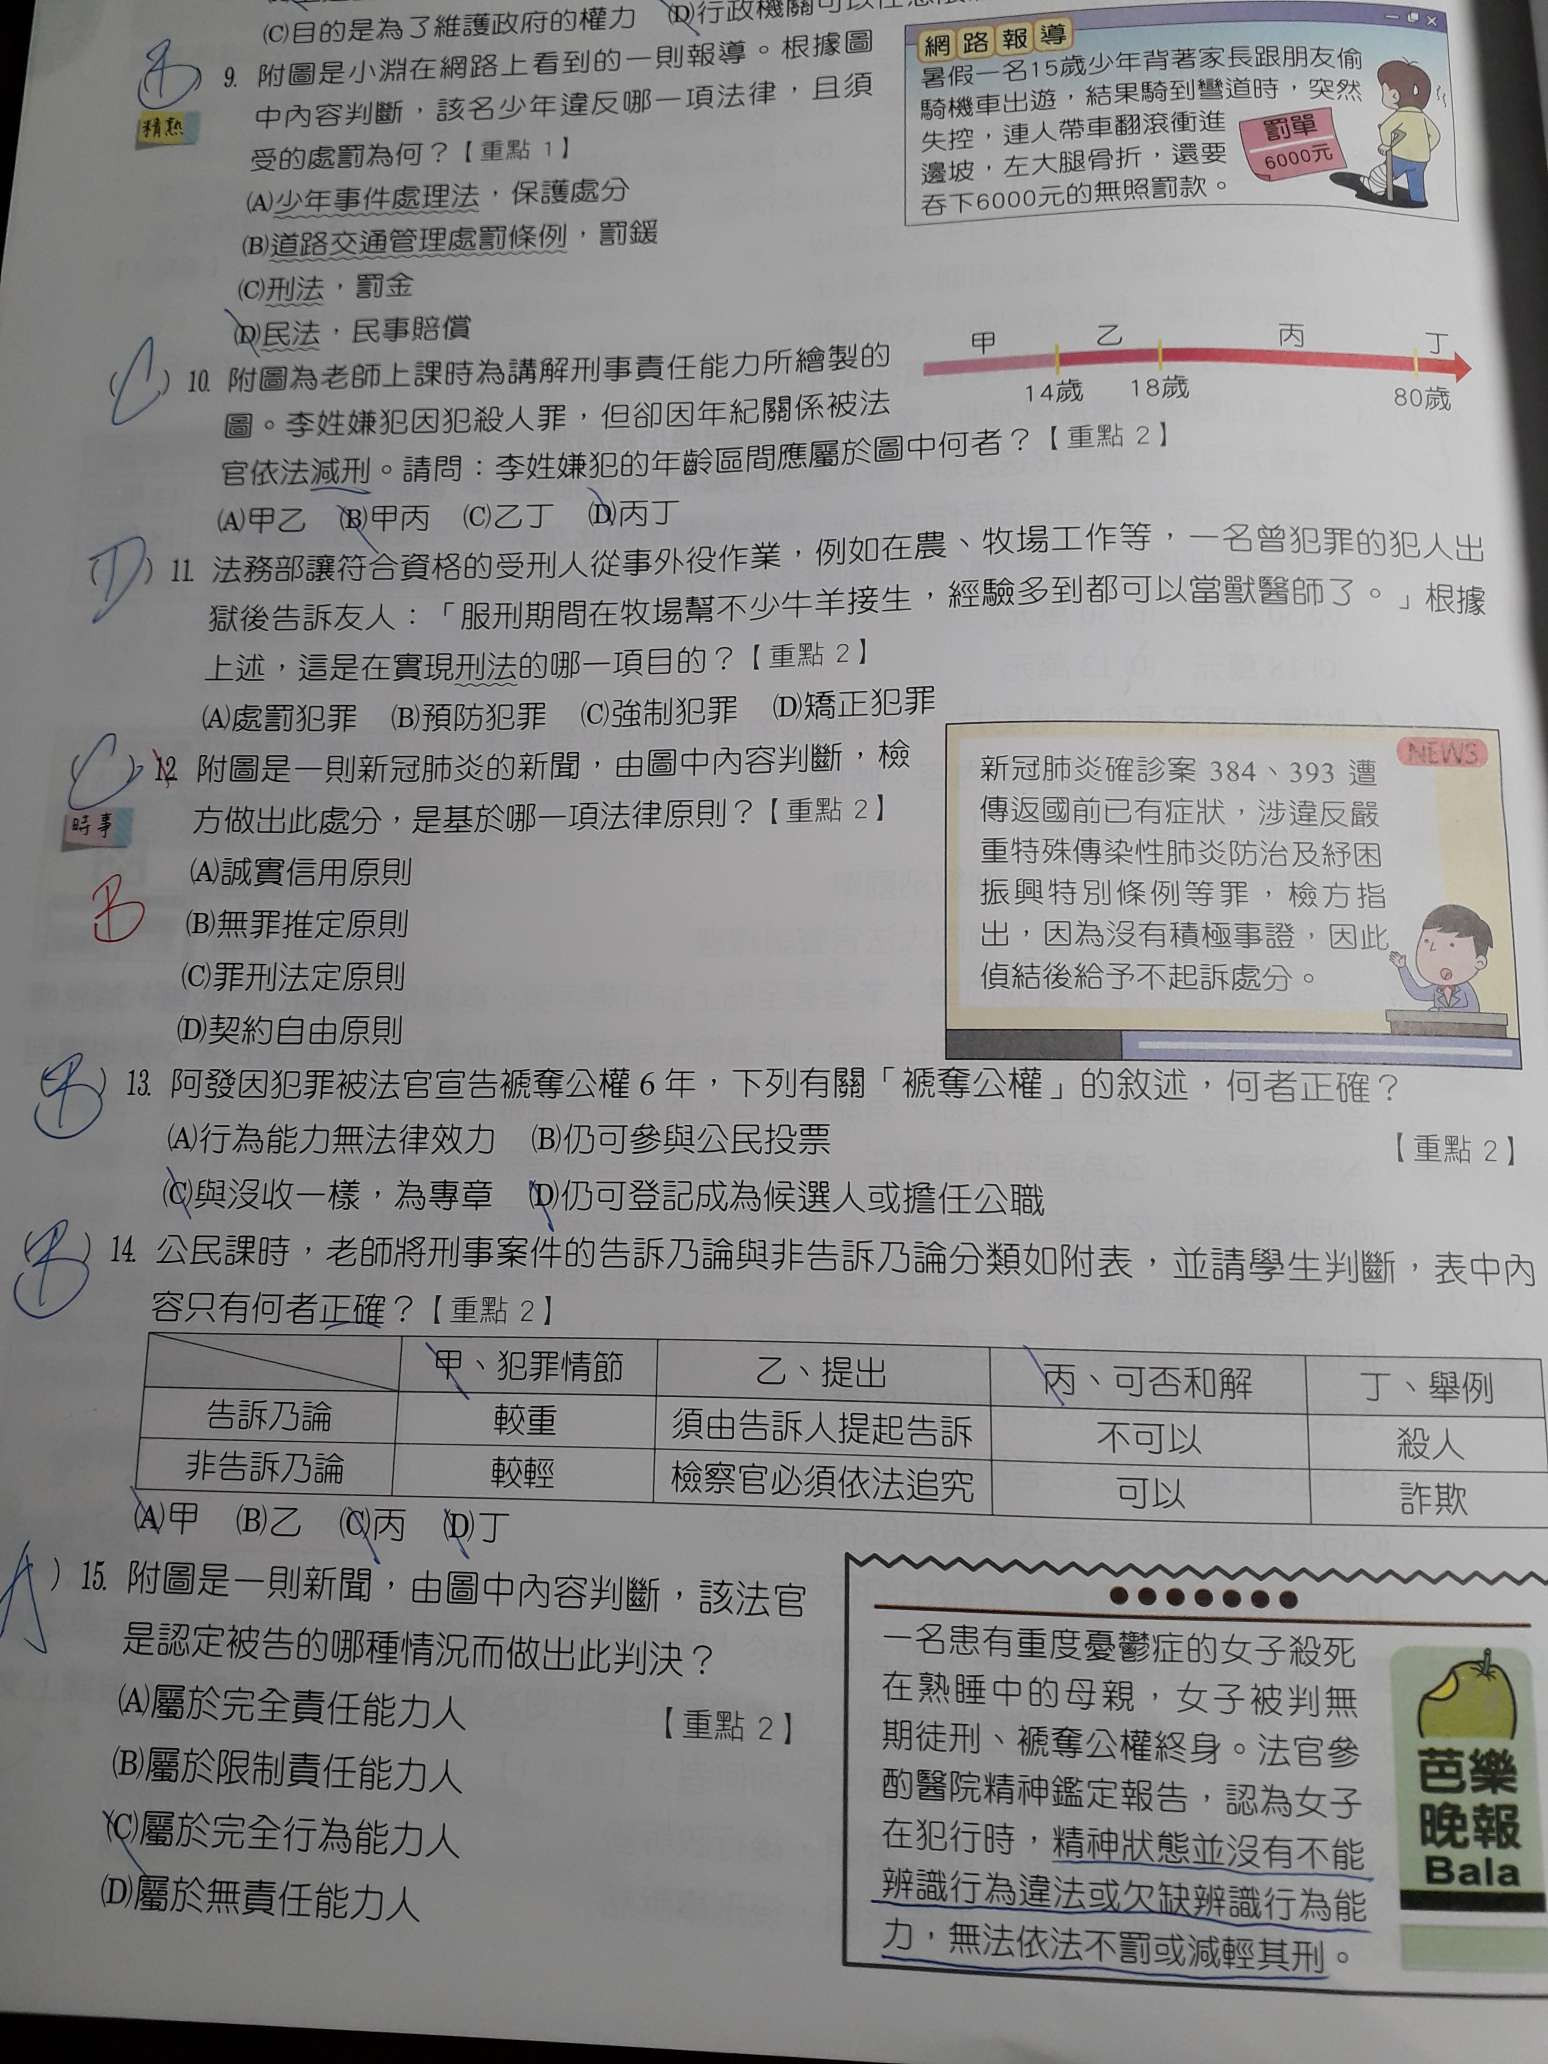 (C)目的是為了維護政府的權力 (D)行政機關可以任意
B
精熟
9. 附圖是小淵在網路上看到的一則報導。根據圖
中內容判斷,該名少年違反哪一項法律,且須
受的處罰為何?【重點 1】
(A)少年事件處理法,保護處分
(B)道路交通管理處罰條例,罰鍰
(C)刑法,罰金
(D)民法,民事賠償
網路報導
暑假一名15歲少年背著家長跟朋友偷
騎機車出遊,結果騎到彎道時,突然
失控,連人帶車翻滾衝進
邊坡,左大腿骨折,還要
吞下6000元的無照罰款。
罰單
6000元
(C) 10. 附圖為老師上課時為講解刑事責任能力所繪製的
圖。李姓嫌犯因犯殺人罪,但卻因年紀關係被法
官依法減刑。請問:李姓嫌犯的年齡區間應屬於圖中何者?【重點 2】
(A)甲乙 (B)甲丙 (C)乙丁 (D)丙丁
甲 乙 丙 丁
14歲 18歲 80歲
(D) 11. 法務部讓符合資格的受刑人從事外役作業,例如在農、牧場工作等,一名曾犯罪的犯人出
獄後告訴友人:「服刑期間在牧場幫不少牛羊接生,經驗多到都可以當獸醫師了。」根據
上述,這是在實現刑法的哪一項目的?【重點 2】
(A)處罰犯罪 (B)預防犯罪 (C)強制犯罪 (D)矯正犯罪
(C) 12. 附圖是一則新冠肺炎的新聞,由圖中內容判斷,檢
時事
方做出此處分,是基於哪一項法律原則?【重點 2】
(A)誠實信用原則
B
(B)無罪推定原則
(C)罪刑法定原則
(D)契約自由原則
NEWS
新冠肺炎確診案 384、393 遭
傳返國前已有症狀,涉違反嚴
重特殊傳染性肺炎防治及紓困
振興特別條例等罪,檢方指
出,因為沒有積極事證,因此
偵結後給予不起訴處分。
(B) 13. 阿發因犯罪被法官宣告褫奪公權 6 年,下列有關「褫奪公權」的敘述,何者正確?
(A)行為能力無法律效力 (B)仍可參與公民投票 【重點 2】
(C)與沒收一樣,為專章 (D)仍可登記成為候選人或擔任公職
(B) 14. 公民課時,老師將刑事案件的告訴乃論與非告訴乃論分類如附表,並請學生判斷,表中內
容只有何者正確?【重點 2】
甲、犯罪情節 乙、提出 丙、可否和解 丁、舉例
告訴乃論 較重 須由告訴人提起告訴 不可以 殺人
非告訴乃論 較輕 檢察官必須依法追究 可以 詐欺
(A)甲 (B)乙 (C)丙 (D)丁
A ) 15. 附圖是一則新聞,由圖中內容判斷,該法官
是認定被告的哪種情況而做出此判決?
(A)屬於完全責任能力人 【重點 2】
(B)屬於限制責任能力人
(C)屬於完全行為能力人
(D)屬於無責任能力人
一名患有重度憂鬱症的女子殺死
在熟睡中的母親,女子被判無
期徒刑、褫奪公權終身。法官參
酌醫院精神鑑定報告,認為女子
在犯行時,精神狀態並沒有不能
辨識行為違法或欠缺辨識行為能
力,無法依法不罰或減輕其刑。
芭樂
晚報
Bala